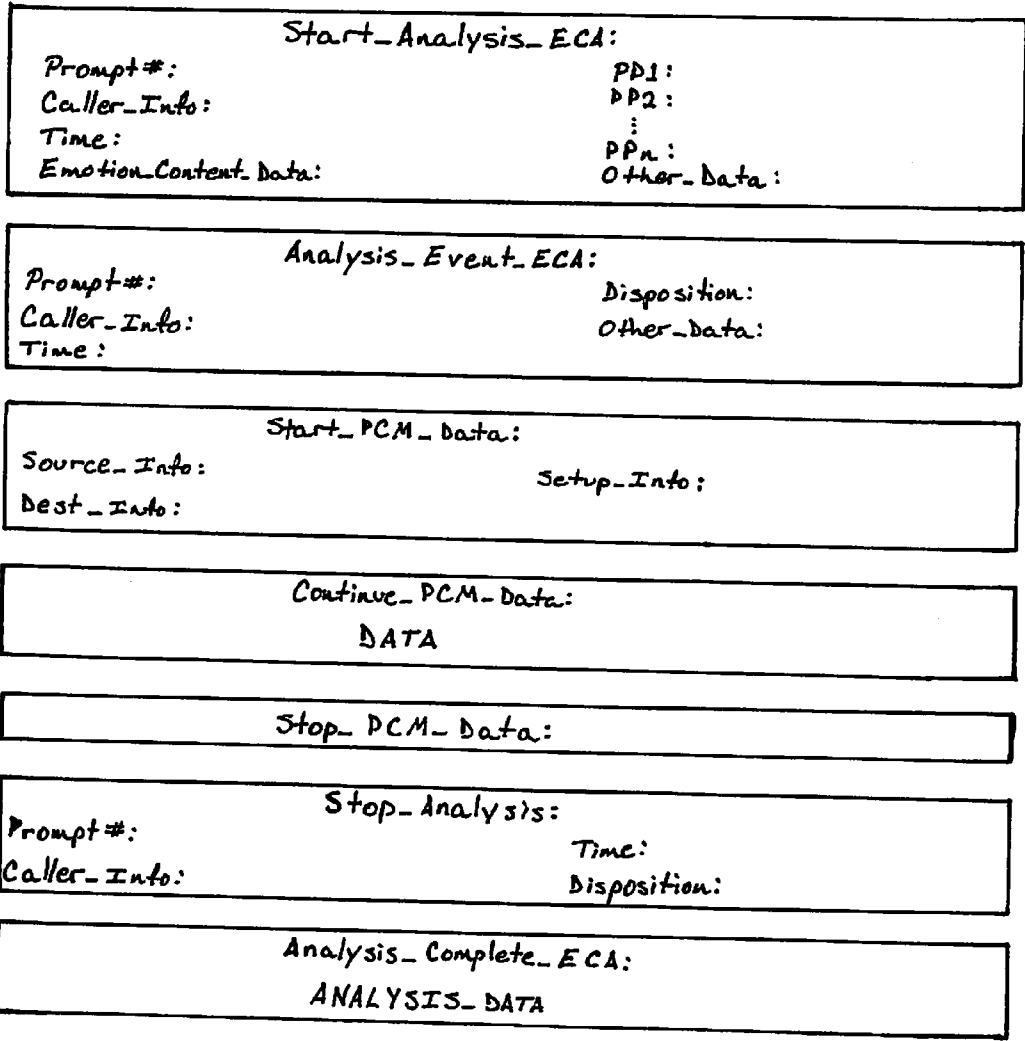 Start_Analysis_ECA:
Prompt#: PP1:
Caller_Info: PP2:
Time: ⋮
Emotion_Content_Data: PPn:
Other_Data:
Analysis_Event_ECA:
Prompt#: Disposition:
Caller_Info: Other_Data:
Time:
Start_PCM_Data:
Source_Info: Setup_Info:
Dest_Info:
Continue_PCM_Data:
DATA
Stop_PCM_Data:
Stop_Analysis:
Prompt#: Time:
Caller_Info: Disposition:
Analysis_Complete_ECA:
ANALYSIS_DATA